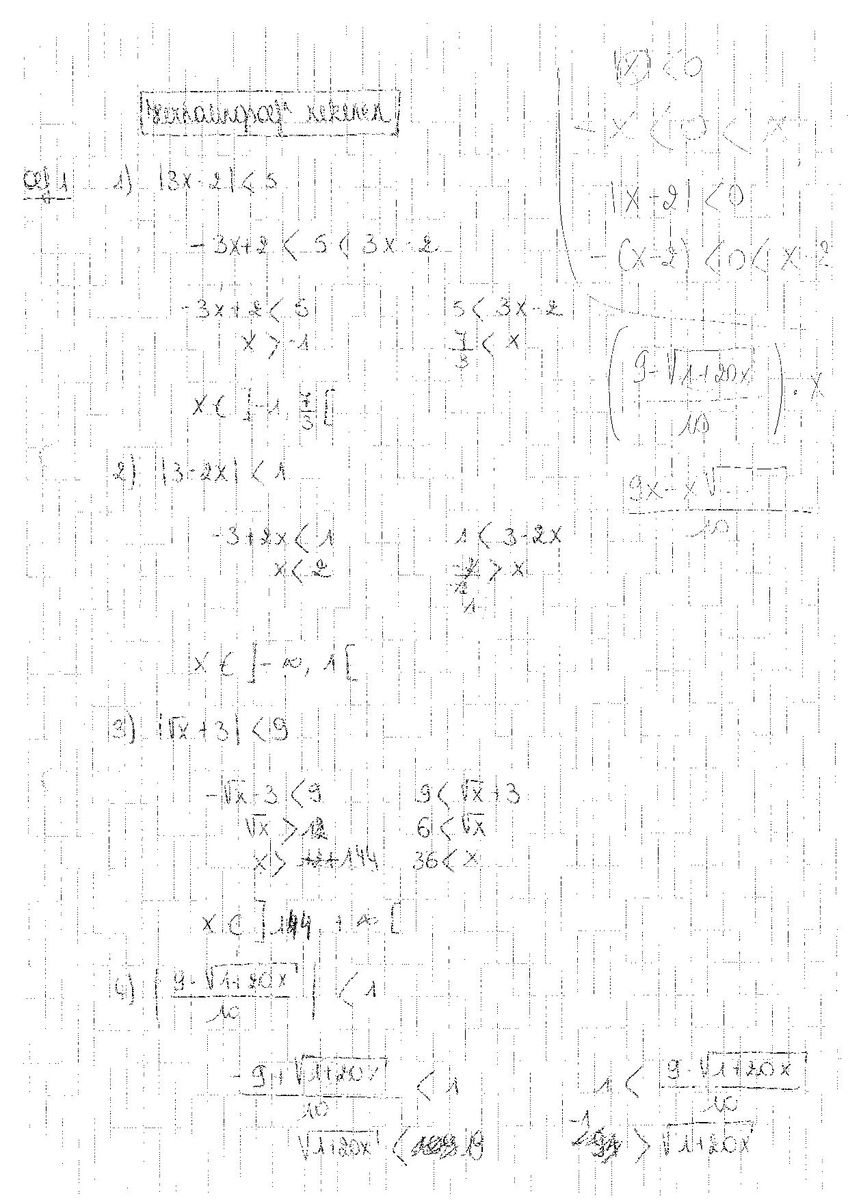 rekenen
Oef 1 1) |3x-2| < 5
-3x+2 < 5 < 3x-2
-3x+2 < 5 5 < 3x-2
x > -1 7/3 < x
x ∈ ]-1, 7/3[
2) |3-2x| < 1
-3+2x < 1 1 < 3-2x
x < 2 > x
1
x ∈ ]-∞, 1[
3) |√x+3| < 9
-√x-3 < 9 9 < √x+3
√x > 12 6 < √x
x > 144 36 < x
x ∈ ]144, +∞[
4) |(9-√(1+20x))/10| < 1
(-9+√(1+20x))/10 < 1 1 < (9-√(1+20x))/10
√(1+20x) < 19 -1 > √(1+20x)
|x| < 0
-x < 0 < x
|x-2| < 0
-(x-2) < 0 < x-2
((9-√(1+20x))/10) · x
(9x-x√...)/10